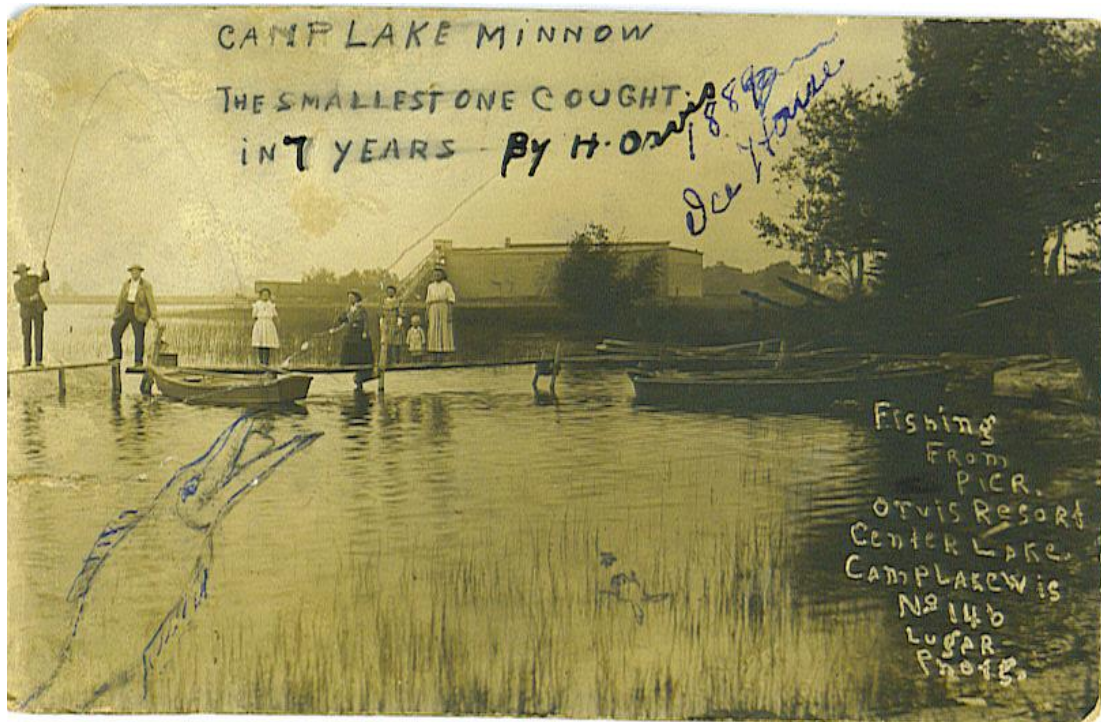 CAMP LAKE MINNOW
THE SMALLEST ONE COUGHT
IN 7 YEARS BY H. Orvis
Ice House
Fishing
From
Pier.
Orvis Resort
Center Lake
Camp Lake Wis
No 146
Lugar
Photg.